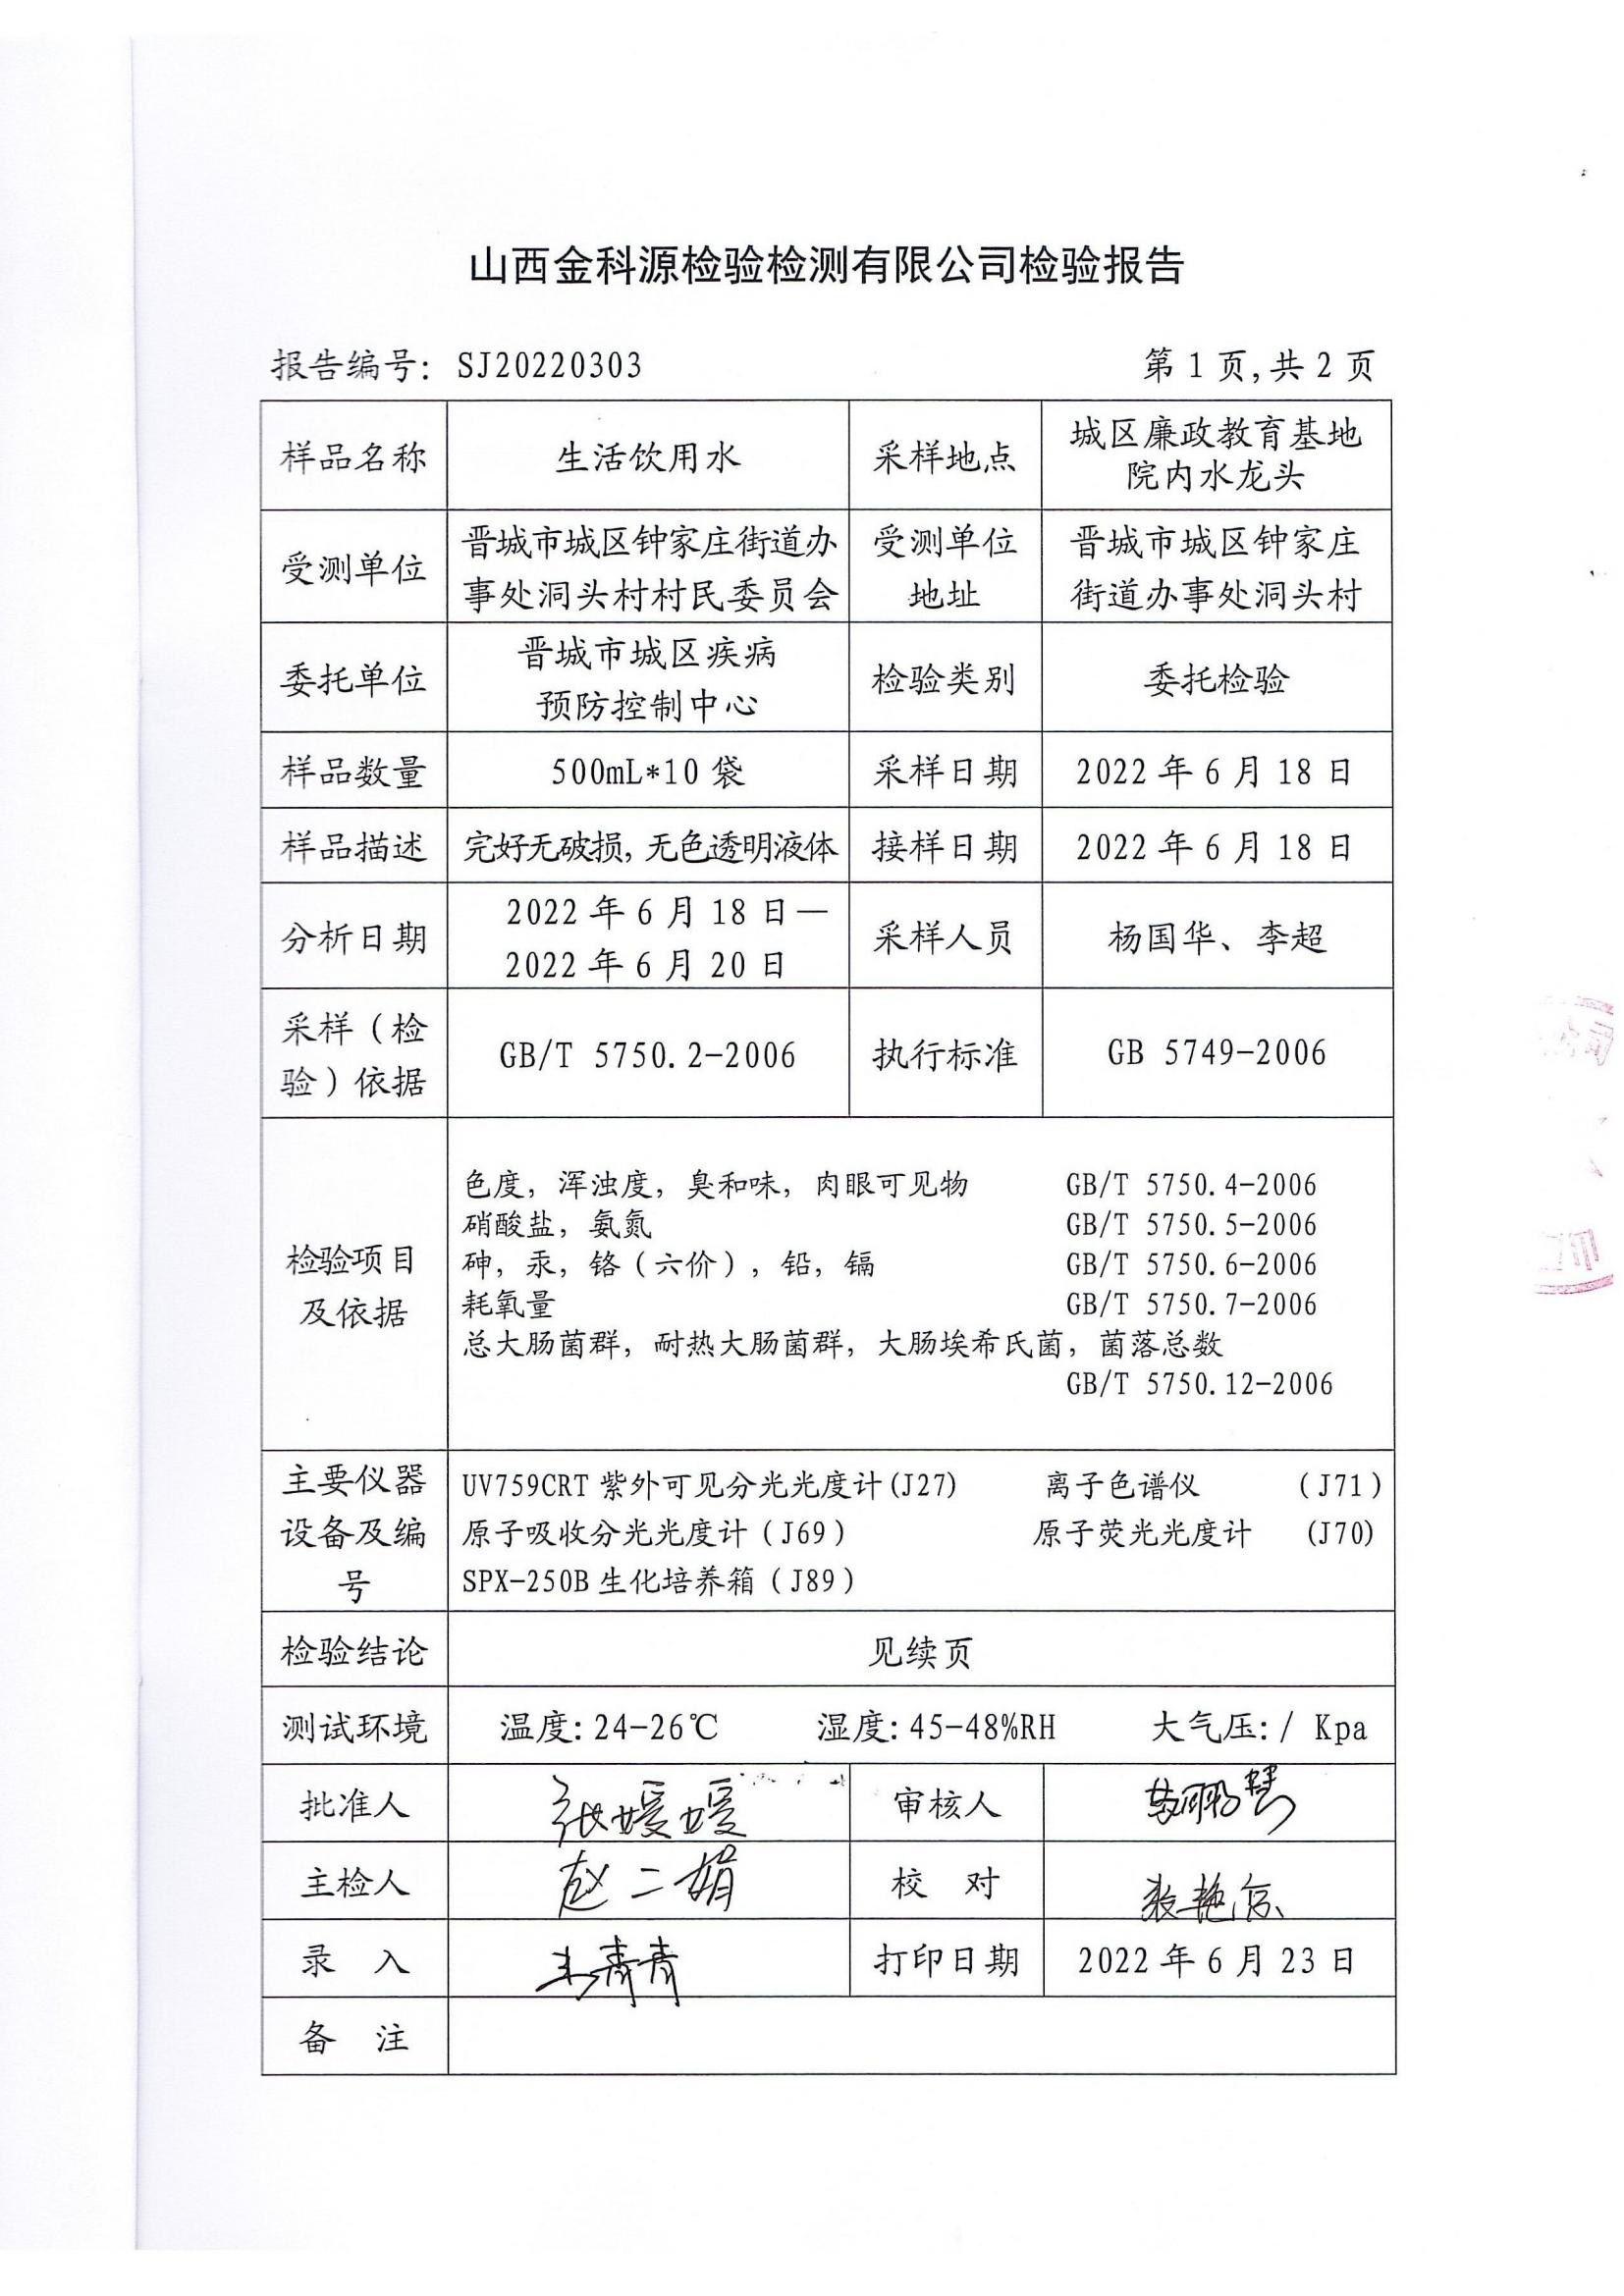 山西金科源检验检测有限公司检验报告
报告编号: SJ20220303 第 1 页,共 2 页
样品名称 生活饮用水 采样地点 城区廉政教育基地
院内水龙头
受测单位 晋城市城区钟家庄街道办
事处洞头村村民委员会 受测单位
地址 晋城市城区钟家庄
街道办事处洞头村
委托单位 晋城市城区疾病
预防控制中心 检验类别 委托检验
样品数量 500mL*10 袋 采样日期 2022 年 6 月 18 日
样品描述 完好无破损,无色透明液体 接样日期 2022 年 6 月 18 日
分析日期 2022 年 6 月 18 日—
2022 年 6 月 20 日 采样人员 杨国华、李超
采样(检
验)依据 GB/T 5750.2-2006 执行标准 GB 5749-2006
检验项目
及依据
色度, 浑浊度, 臭和味, 肉眼可见物 GB/T 5750.4-2006
硝酸盐, 氨氮 GB/T 5750.5-2006
砷, 汞, 铬(六价), 铅, 镉 GB/T 5750.6-2006
耗氧量 GB/T 5750.7-2006
总大肠菌群, 耐热大肠菌群, 大肠埃希氏菌, 菌落总数
GB/T 5750.12-2006
主要仪器
设备及编
号
UV759CRT 紫外可见分光光度计(J27) 离子色谱仪 (J71)
原子吸收分光光度计(J69) 原子荧光光度计 (J70)
SPX-250B 生化培养箱(J89)
检验结论 见续页
测试环境 温度: 24-26℃ 湿度: 45-48%RH 大气压: / Kpa
批准人 张媛媛 审核人
主检人 赵二娟 校 对
录 入 青青 打印日期 2022 年 6 月 23 日
备 注